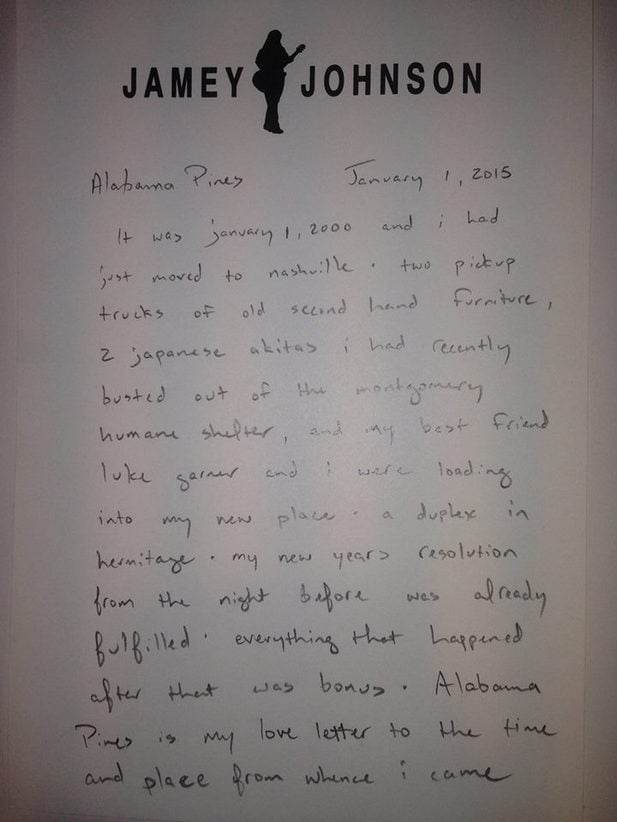 JAMEY JOHNSON
Alabama Pines January 1, 2015
It was january 1, 2000 and i had
just moved to nashville. two pickup
trucks of old second hand furniture,
2 japanese akitas i had recently
busted out of the montgomery
humane shelter, and my best friend
luke garner and i were loading
into my new place. a duplex in
hermitage. my new years resolution
from the night before was already
fulfilled. everything that happened
after that was bonus. Alabama
Pines is my love letter to the time
and place from whence i came